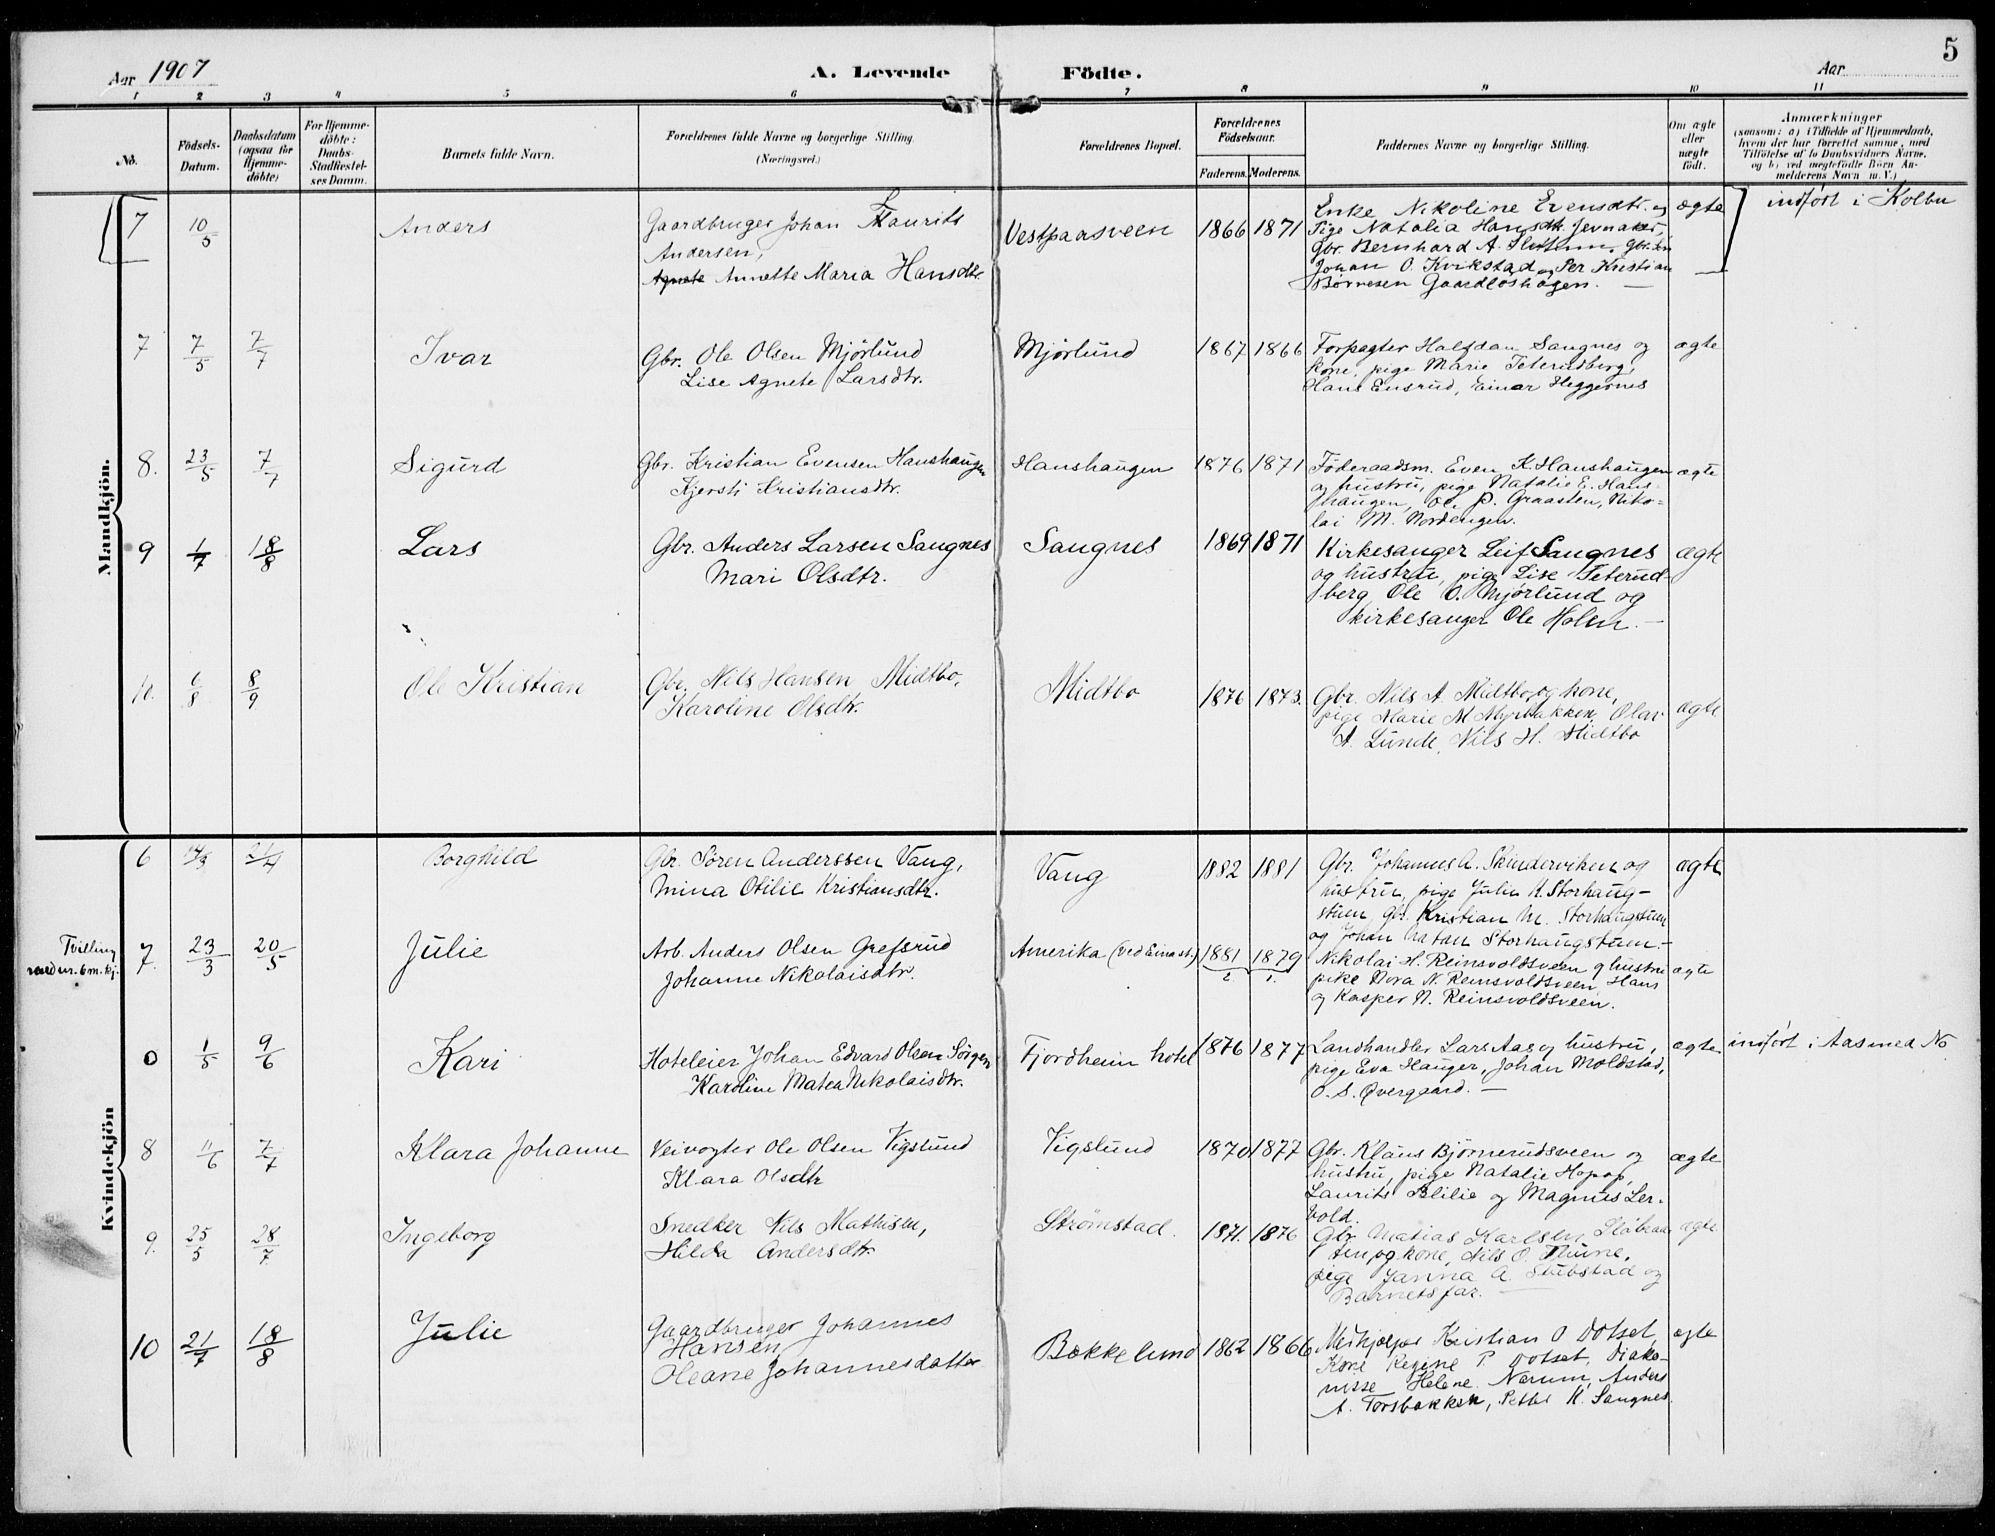 Aar 1907
A. Levende Födte.
Aar
5
1 2 3 4 5 6 7 8 9 10 11
No.
Födsels-Datum.
Daabsdatum (ogsaa for Hjemme-döbte)
For Hjemme-döbte: Daabs-Stadfæstel-ses Datum.
Barnets fulde Navn.
Forældrenes fulde Navne og borgerlige Stilling.
(Næringsvei.)
Forældrenes Bopæl.
Forældrenes Födselsaar.
Faderens. Moderens.
Faddernes Navne og borgerlige Stilling.
Om ægte eller uægte födt.
Anmærkninger
(saasom: a) i Tilfælde af Hjemmedaab,
hvem der har forrettet samme, med
Tilföielse af to Daabsvidners Navne,
og b) ved uægtefödte Börn An-
melderens Navn m. V.)
Mandkjön.
7 10/5 Anders
Gaardbruger Johan Laurits
Andersen,
Agnete Annette Maria Hansdtr.
Vestpaasveen 1866 1871
Enke Nikoline Evensdtr. og
Pige Natalia Hansdtr. Jevnaker,
Gbr. Bernhard A. Gbr. søn
Johan O. Kvikstad og Per Kristian
Børresen Gaardløshagen. —
ægte
indført i Kolbu
7 7/5 7/7 Ivar
Gbr. Ole Olsen Mjørlund
Lise Agnete Larsdtr.
Mjørlund 1867 1866
Forpagter Halfdan Sangnes og
kone, pige Marie Teterudberg,
Hans Ensrud, Einar Heggernes
ægte
8. 23/5 7/7 Sigurd
Gbr. Kristian Evensen Hanshaugen
Kjersti Kristiansdtr.
Hanshaugen 1876 1871
Föderaadsm. Even K. Hanshaugen
og hustru, pige Natalie E. Hans-
haugen, Ole P. Graasten, Niko-
lai M. Nordengen.
ægte
9 1/7 18/8 Lars
Gbr. Anders Larsen Sangnes
Mari Olsdtr.
Sangnes 1869 1871
Kirkesanger Leif Sangnes
og hustru, pige Lise Teterud-
berg Ole O. Mjørlund og
kirkesanger Ole Holen. —
ægte
10. 6/8 8/9 Ole Kristian
Gbr. Nils Hansen Midtbo,
Karoline Olsdtr.
Midtbo 1876 1873.
Gbr. Nils A. Midtbo og kone,
pige Marie M Myrbakken, Olav
A. Lunde, Nils H. Midtbo
ægte
Kvindekjön
6 14/3 21/4 Borghild
Gbr. Sören Anderssen Vang,
Mina Otilie Kristiansdtr.
Vang 1882 1881
Gbr. Johannes A. Skinderviken og
hustru, pige Julie K. Storhaug-
stuen, gbr. Kristian M. Storhaugstuen
og Johan Natan Storhaugstuen. —
ægte
Tvilling
med nr. 6 m. kj.
7. 23/3 20/5 Julie
Arb. Anders Olsen Grefsrud
Johanne Nikolaisdtr.
Amerika (ved Eina st.) 1881 1879
2. 1.
Nikolai H. Reinsvoldsveen og hustru
pike Dora N. Reinsvoldsveen, Hans
og Kasper N. Reinsvoldsveen.
ægte
0 1/5 9/6 Kari
Hoteleier Johan Edvard Olsen Sörgen
Karoline Matea Nikolaisdtr.
Fjordheim hotel 1876 1877
Landhandler Lars Aas og hustru,
pige Eva Hauger, Johan Moldstad,
O. S. Øvergaard. —
ægte
indført i Aas med No
8 11/6 7/7 Klara Johanne
Veivogter Ole Olsen Vigslund
Klara Olsdtr
Vigslund 1870 1877
Gbr. Klaus Bjørnerudsveen og
hustru, pige Natalie Hopop,
Laurits Blilie og Magnus Ler-
vold.
ægte
9. 25/5 28/7 Ingeborg
Snedker Nils Mathisen,
Hilda Andersdtr.
Strømstad. 1871. 1876
Gbr. Matias Karlsen Slåbraa-
ten og kone, Nils O. Thune,
pige Janna A. Stubstad og
Barnets far. —
ægte
10 21/7 18/8 Julie
Gaardbruger Johannes
Hansen,
Oleane Johannesdatter
Bækkelund 1862 1866
Medhjælper Kristian O Dotset,
Kone Regine P. Dotset, Diako-
nisse Helene Narum, Anders
A. Torsbakken, Petter K. Sangnes.
ægte